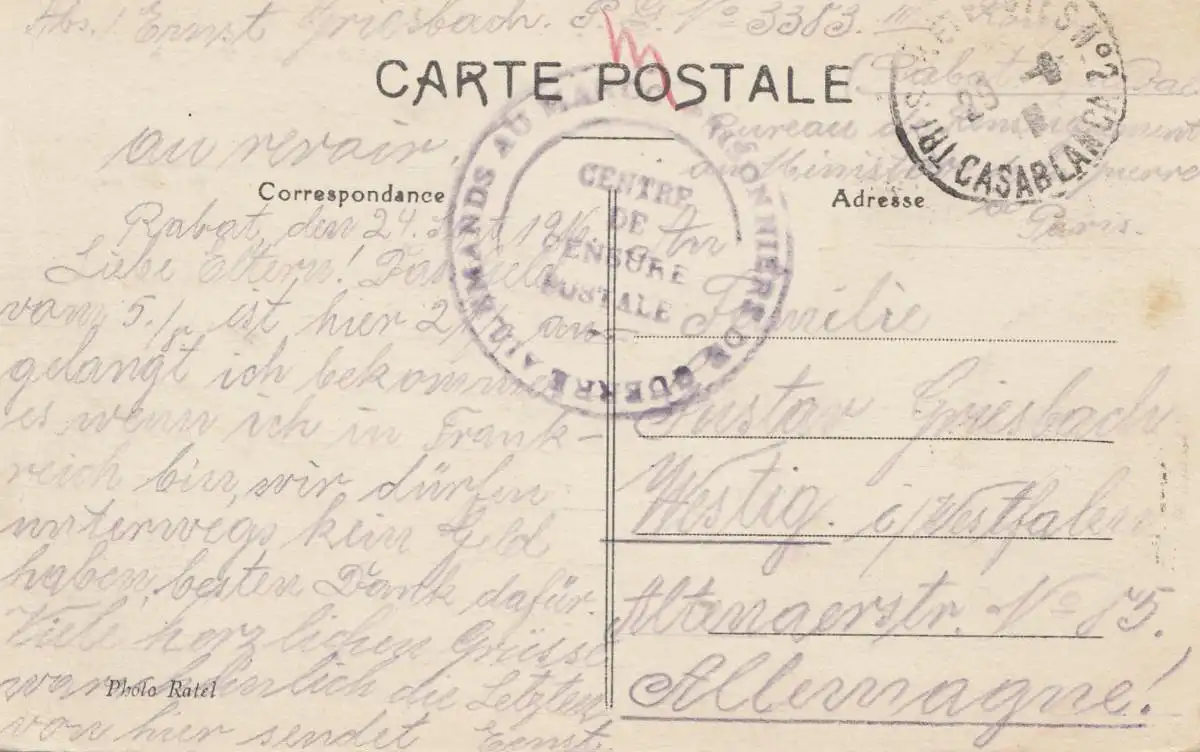 Abs.! Ernst Griesbach. P.G. No 3383.
CARTE POSTALE
Rabat
Bureau de Renseignements
au Ministère guerre
Paris.
TRÉSOR CASABLANCA
PRISONNIERS DE GUERRE ALLEMANDS AU MAROC
CENTRE
DE
CENSURE
POSTALE
au revoir.
Correspondance
Adresse
Rabat, den 24. 1916
Liebe Eltern! Das Geld
vom 5./8. ist hier
gelangt ich bekomme
es wenn ich in Frank-
reich bin, wir dürfen
unterwegs kein Geld
haben, besten Dank dafür.
Viele herzlichen Grüsse
die Letzten
von hier sendet Ernst.
An
Familie
Gustav Griesbach
Westig. i/Westfalen
Altenaerstr. No 75.
Allemagne!
Photo Ratel